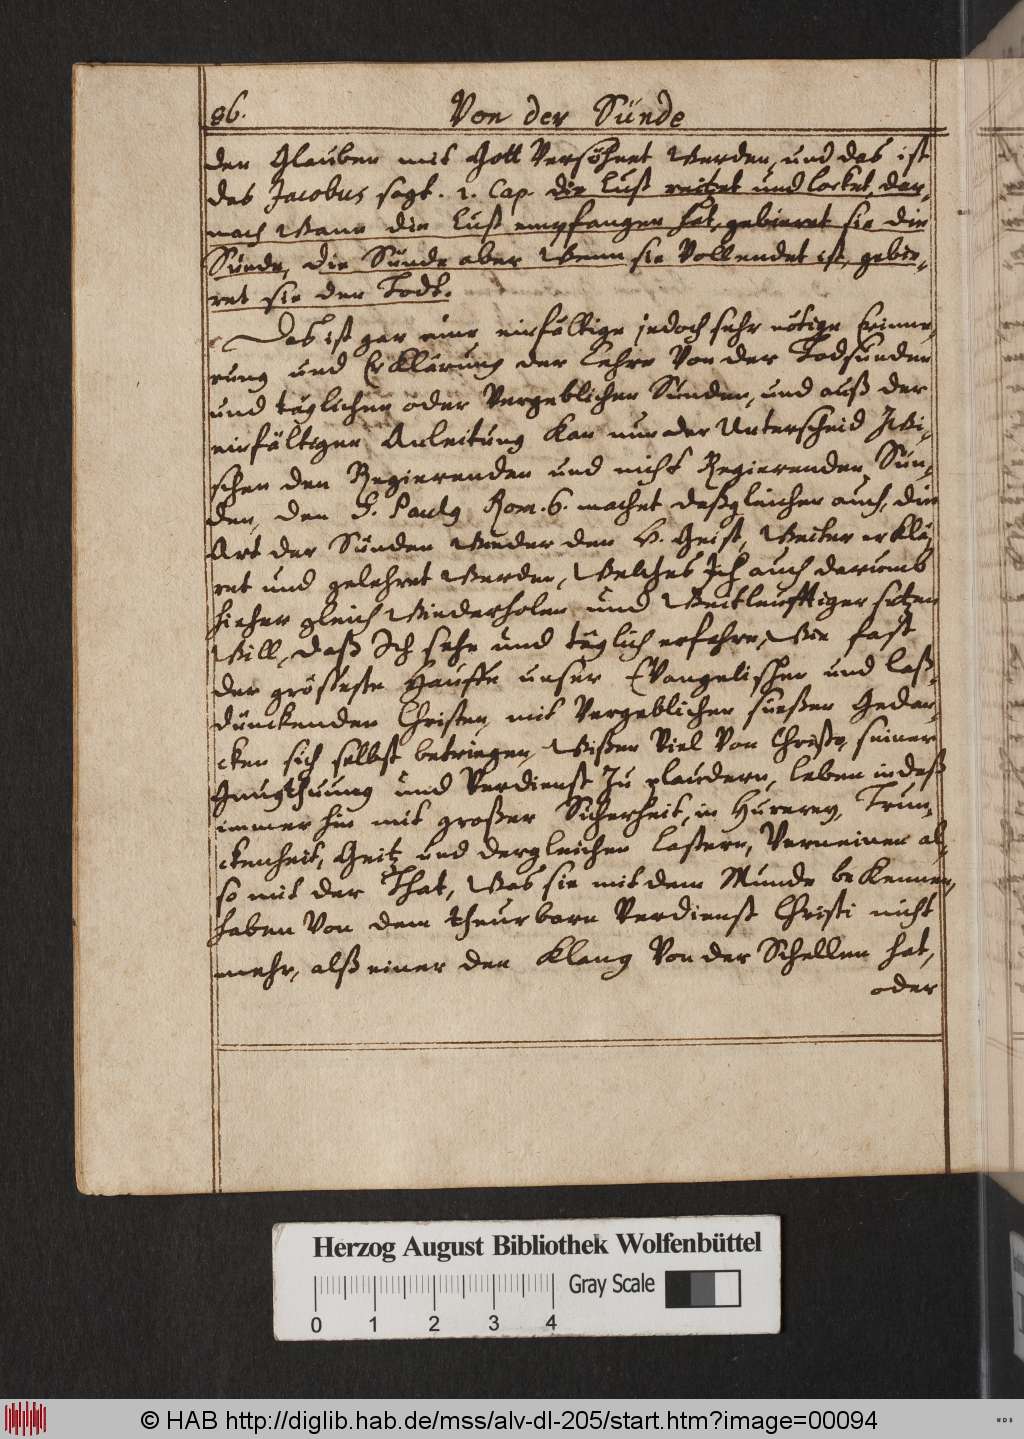 86. Von der Sünde
den Glauben mit Gott Versöhnet Werden, und das ist
das Jacobus sagt. 1. Cap. die lust reitzet und locket, dar,
nach Wann die lust empfangen hat, gebieret sie die
Sünde, die Sünde aber Wenn sie Vollendet ist, gebie,
ret sie den Todt.
Das ist gar eine einfältige jedoch sehr nötige Erinne,
rung und Erklärung der lehre Von der Todsünden
und täglichen oder Vergeblichen Sünden, und auß der
einfältigen Anleitung kan nun der Unterscheid Zwi,
schen den Regierenden und nicht Regierenden Sün,
den, den S. Paulg Rom. 6. machet deßgleichen auch, die
Art der Sünden Wieder den H. Geist, Weiter erklä,
ret und gelehret Werden, Welches Ich auch darumb
hieher gleich Wiederholen und Weitleufftiger setzen
Will, daß Ich sehe und täglich erfahre, Wie fast
der grösseste Hauffe unser Evangelischen und laß,
dünckenden Christen, mit Vergeblichen süeßen Gedan,
cken sich selbst betriegen, Wißen Viel Von Christo, seiner
Gnugthuung und Verdienst Zu plaudern, leben indeß
immer hin mit großer Sicherheit, in Hurerey, Trun,
ckenheit, Geitz und dergleichen lastern, Verneinen al,
so mit der That, Was sie mit dem Munde bekennen,
haben Von dem theurbarn Verdienst Christi nicht
mehr, alß einer den Klang Von der Schellen hat,
oder
Herzog August Bibliothek Wolfenbüttel
Gray Scale
0 1 2 3 4
© HAB http://diglib.hab.de/mss/alv-dl-205/start.htm?image=00094